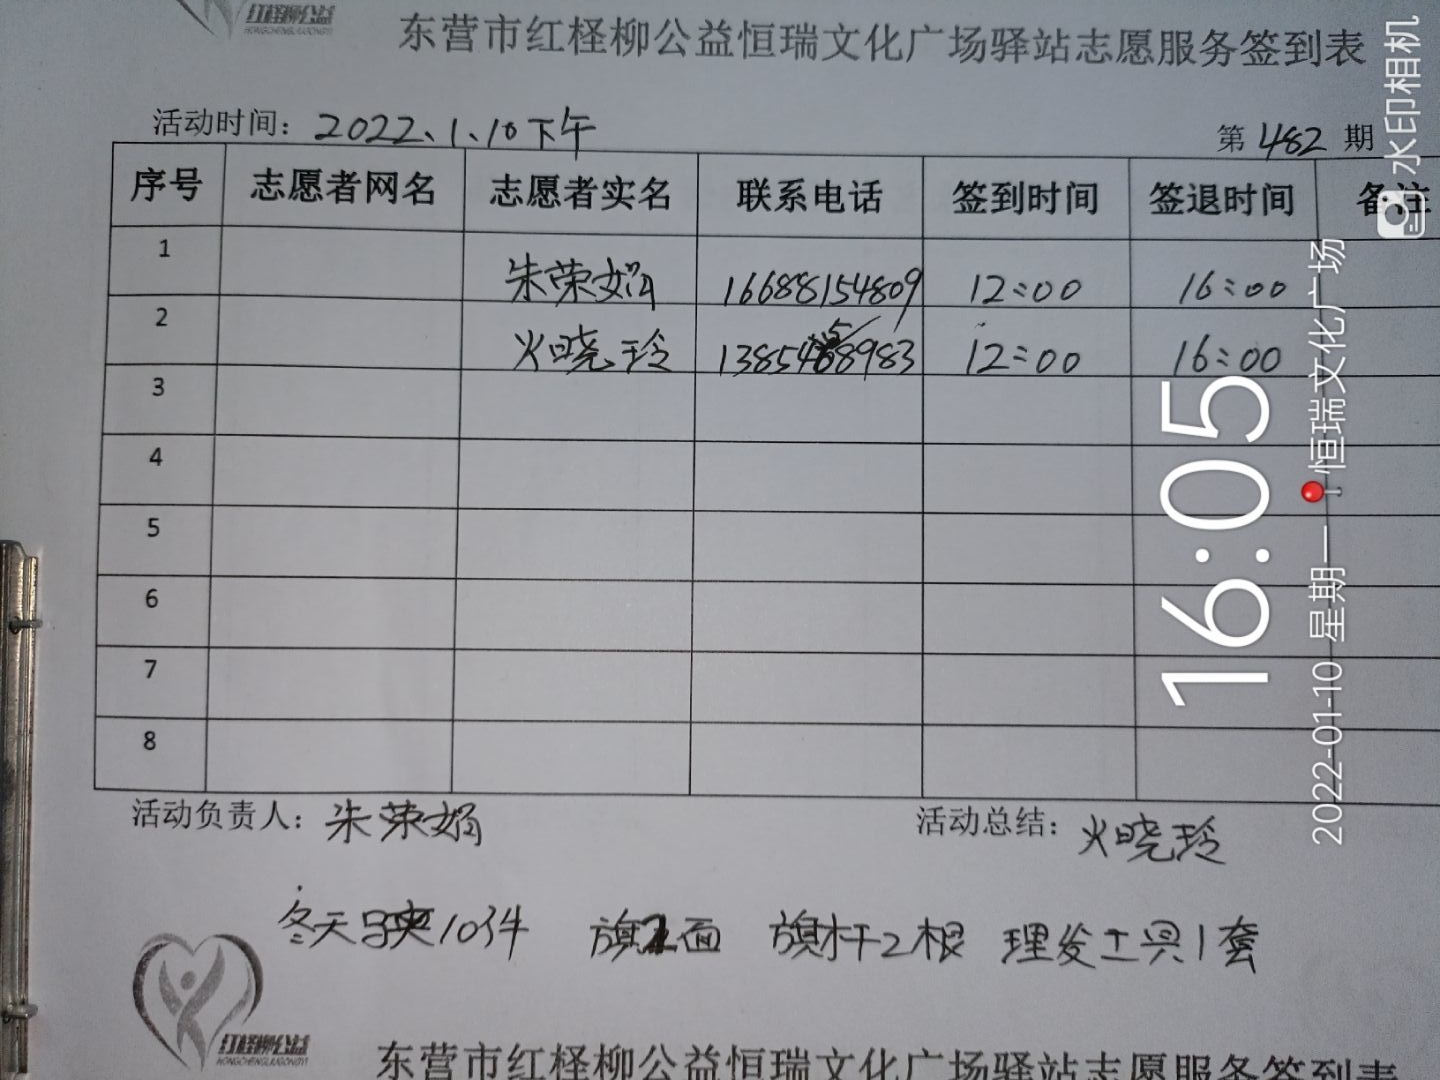 红柽柳公益
HONGCHENGLIUGONGYI
东营市红柽柳公益恒瑞文化广场驿站志愿服务签到表
活动时间：2022、1、10下午
第 482 期
序号 志愿者网名 志愿者实名 联系电话 签到时间 签退时间 备注
1 朱荣娟 16688154809 12:00 16:00
2 火晓玲 12:00 16:00
3
4
5
6
7
8
活动负责人：朱荣娟 活动总结：火晓玲
冬天 10件 旗 面 旗杆2根 理发工具1套
红柽柳公益
HONGCHENGLIUGONGYI
东营市红柽柳公益恒瑞文化广场驿站志愿服务签到表
16:05
2022-01-10 星期一 恒瑞文化广场
水印相机